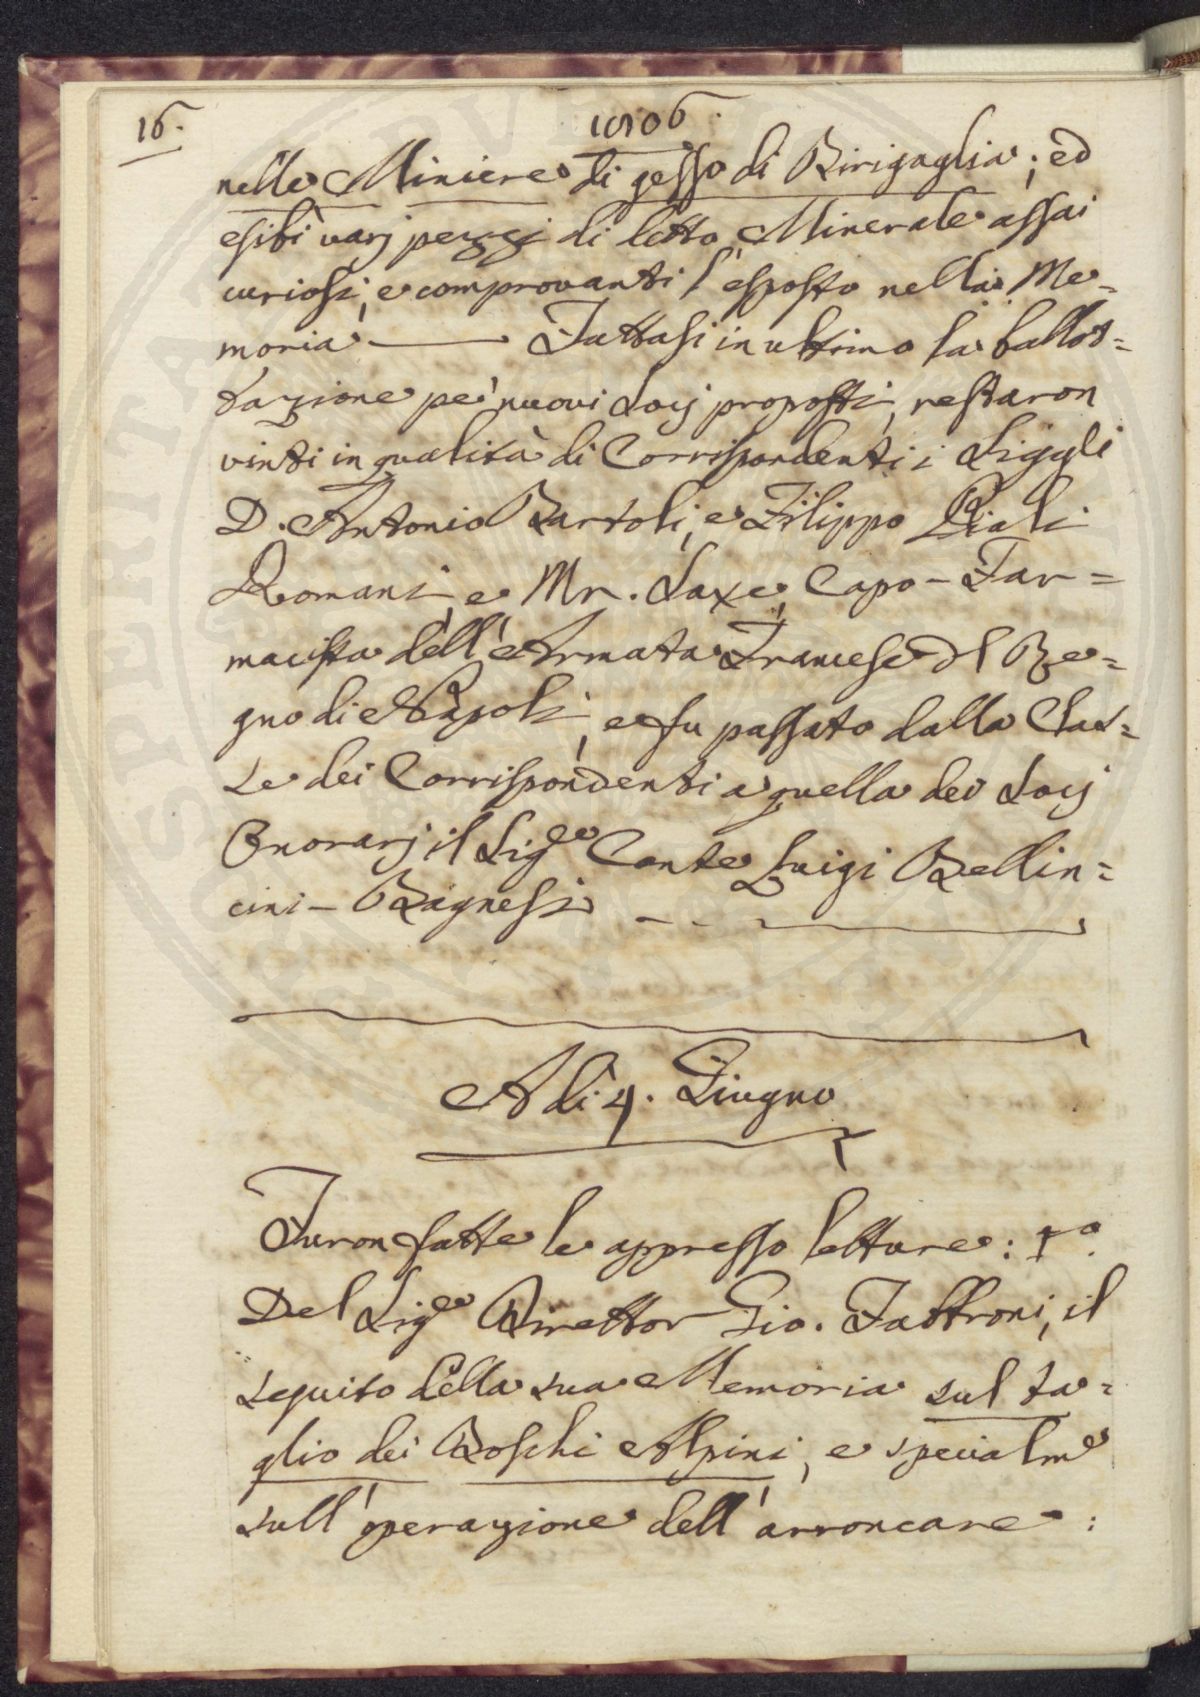 16.
1806.
nelle Miniere di gesso di Birigaglia; ed
esibì varj pezzi di letto Minerale assai
curiosi, e comprovanti l'esposto nella Me=
moria —— Fattasi in ultimo la ballot=
tazione pe' nuovi Socj proposti, restaron
vinti in qualità di Corrispondenti i Sigg.li
D. Antonio Bartoli, e Filippo Pialj
Romani, e Mr. Saxe, Capo-Far=
macista dell'Armata Francese del Re=
gno di Napoli, e fu passato dalla Clas=
se dei Corrispondenti a quella dei Socj
Onorarj il Sig.e Conte Luigi Bellin=
cini-Bagnesi
A dì 4. Giugno
Furon fatte le appresso letture: 1.a
Del Sig.e Direttor Gio. Fabbroni, il
seguito della sua Memoria sul ta=
glio dei Boschi Alpini, e specialm.e
sull'operazione dell'arroncare: